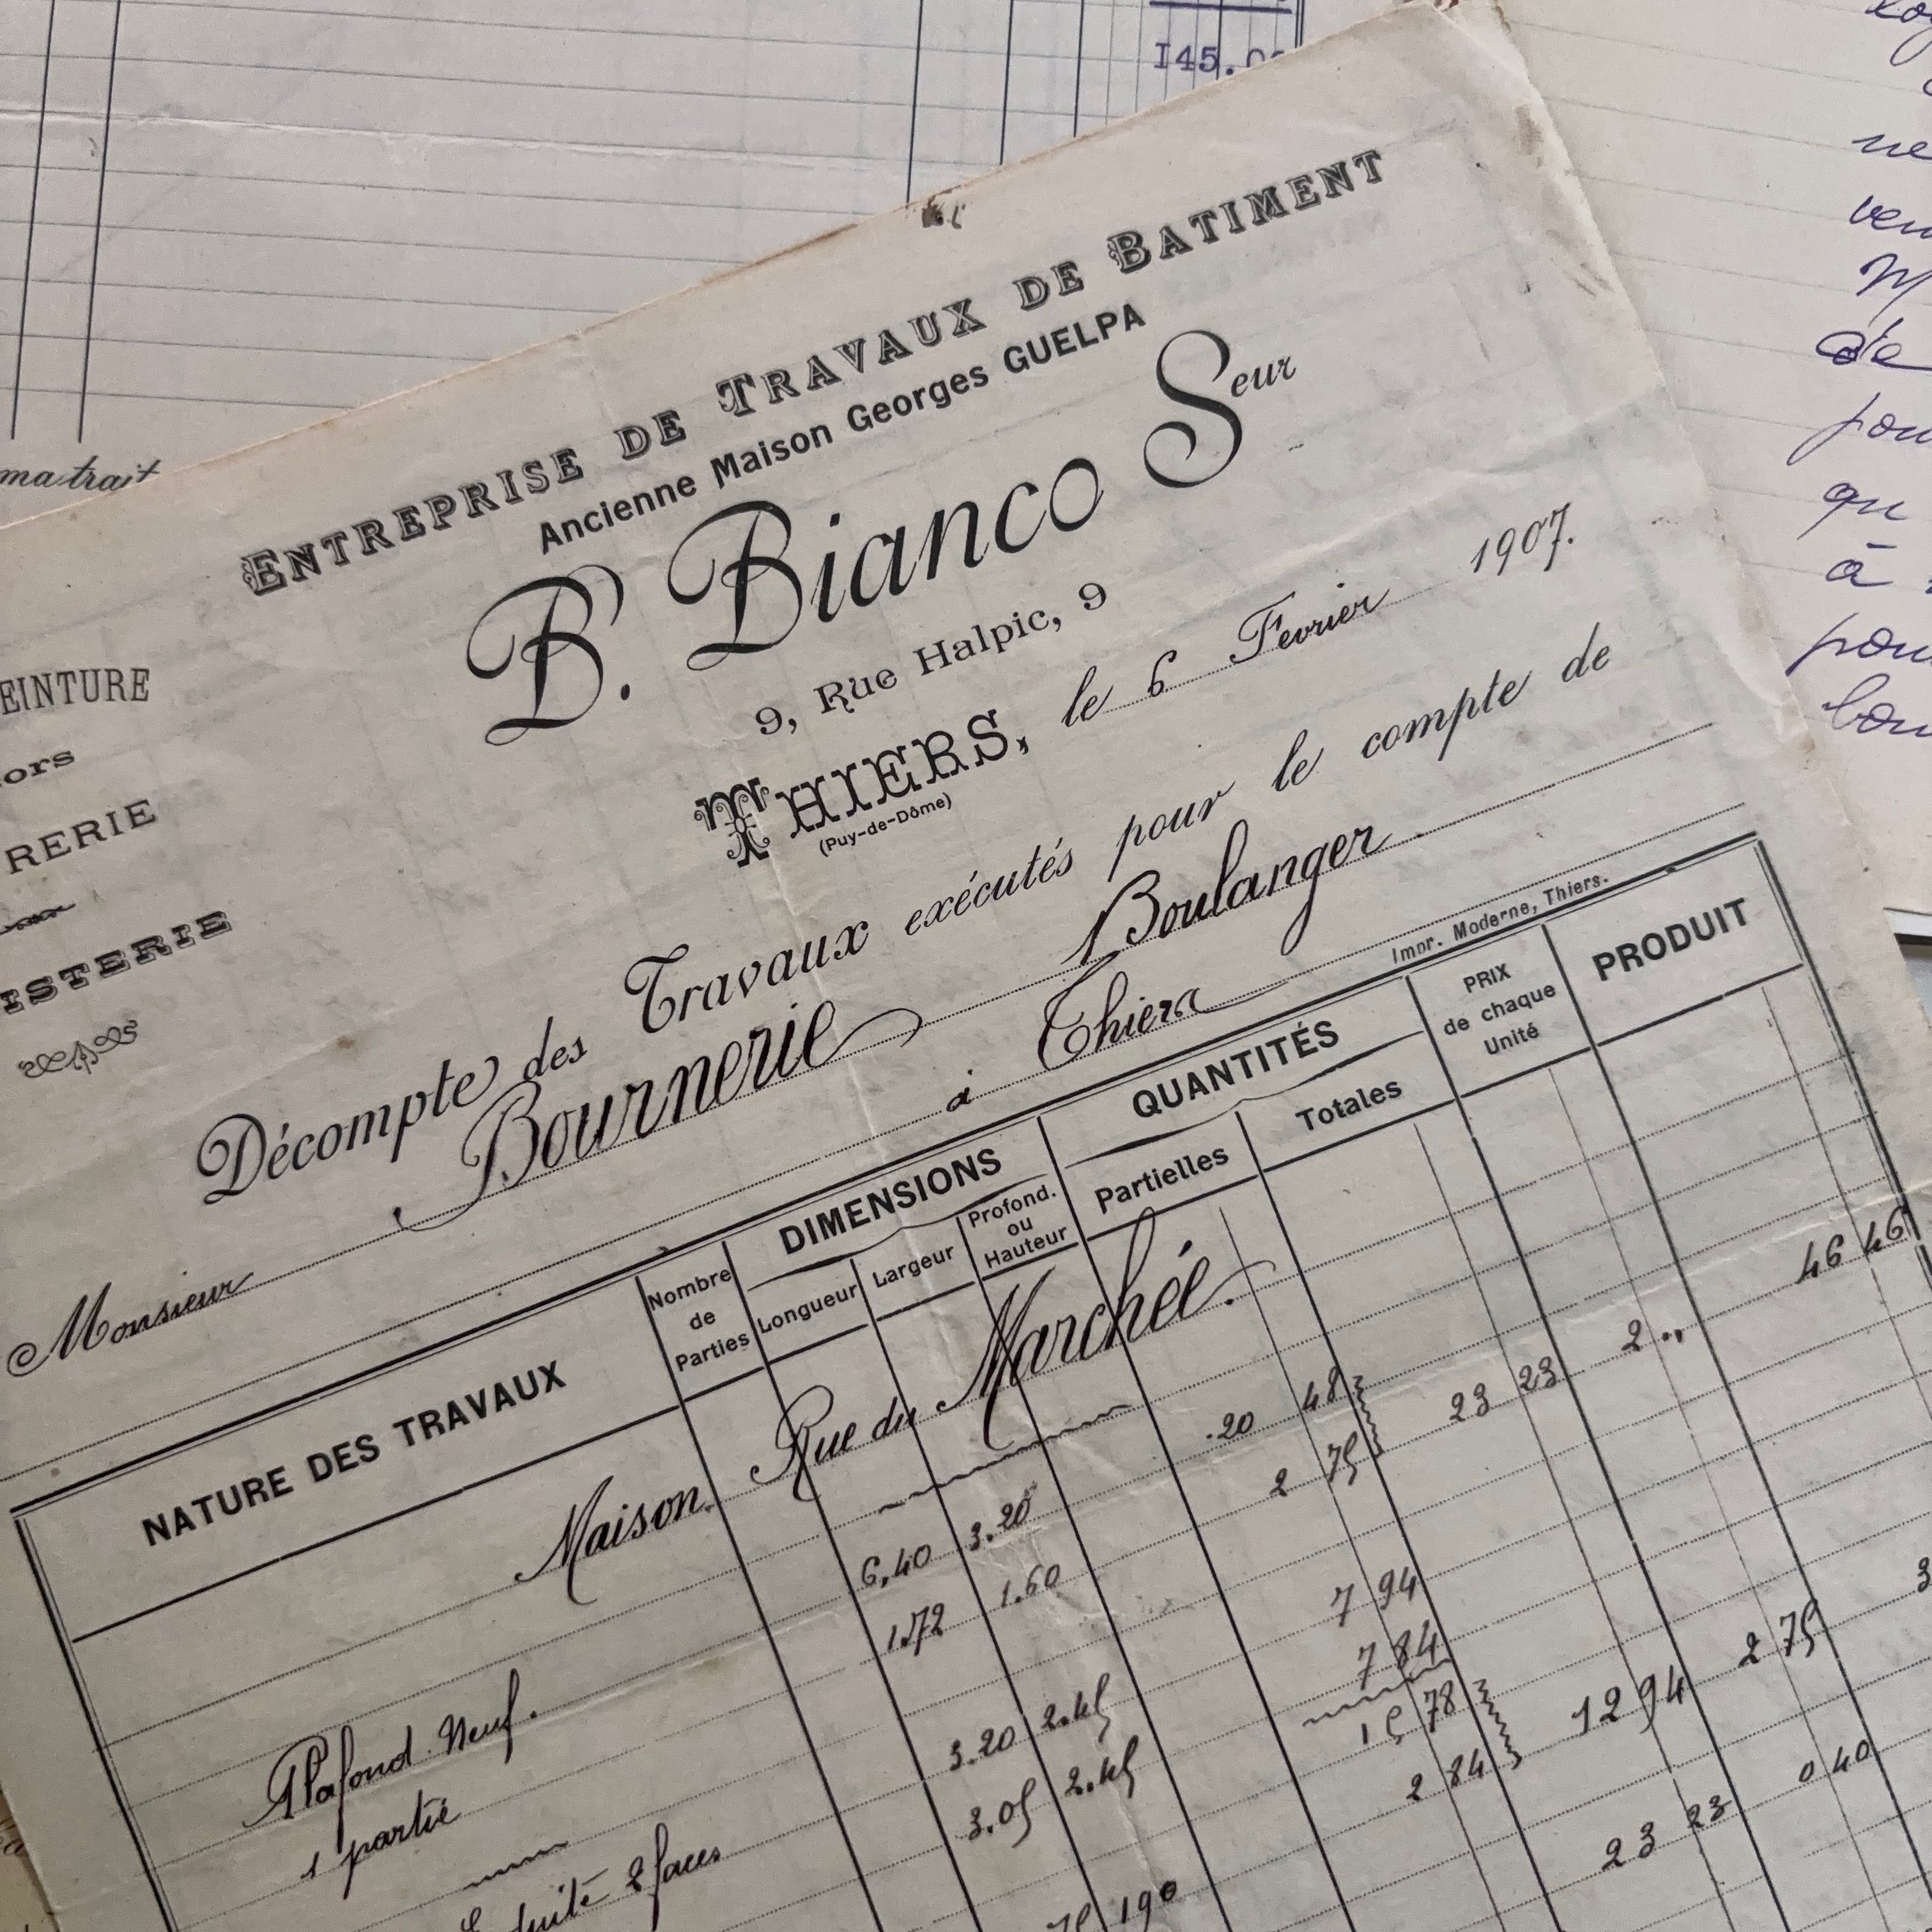 I45.0
ma trait
ENTREPRISE DE TRAVAUX DE BATIMENT
Ancienne Maison Georges GUELPA
B. Bianco Seur
9, Rue Halpic, 9
THIERS, le 6 Fevrier 1907.
(Puy-de-Dôme)
EINTURE
ors
RERIE
ISTERIE
Décompte des Travaux exécutés pour le compte de
Monsieur Bournerie Boulanger
à Thiers
Impr. Moderne, Thiers.
NATURE DES TRAVAUX
Nombre de Parties
DIMENSIONS
Longueur
Largeur
Profond. ou Hauteur
QUANTITÉS
Partielles
Totales
PRIX de chaque Unité
PRODUIT
Maison Rue du Marchéé.
Plafond Neuf. 6,40 3.20 20 48 23 23 2 " 46 46
1 partie 1.72 1.60 2 75
duité 2 faces 3.20 2.45 7 94
3.05 2.45 7 84
15 78 12 94 2 75 3
190 2 84
23 23 0 40
ne
de
pou
qu
à
pou